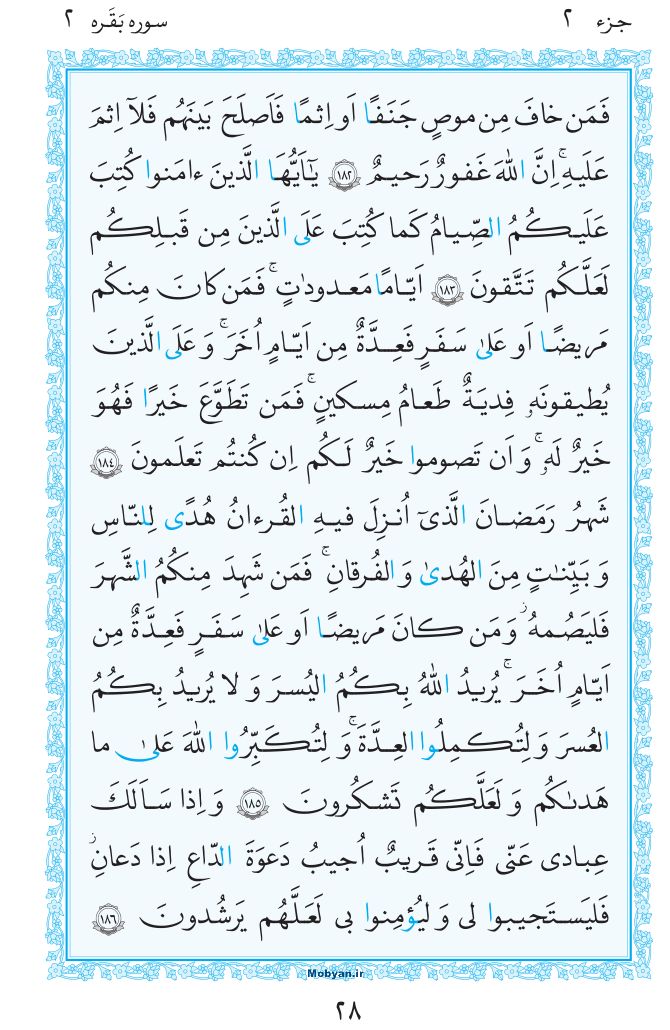 جزء ٢
سوره بَقَره ٢
فَمَن خافَ مِن موصٍ جَنَفًا اَو اِثمًا فَاَصلَحَ بَينَهُم فَلآ اِثمَ
عَلَيهِ ۚ اِنَّ اللّٰهَ غَفورٌ رَحيمٌ ﴿١٨٢﴾ يٰٓاَيُّهَا الَّذينَ ءامَنوا كُتِبَ
عَلَيكُمُ الصِّيامُ كَما كُتِبَ عَلَى الَّذينَ مِن قَبلِكُم
لَعَلَّكُم تَتَّقونَ ﴿١٨٣﴾ اَيّامًا مَعدودٰتٍ ۚ فَمَن كانَ مِنكُم
مَريضًا اَو عَلىٰ سَفَرٍ فَعِدَّةٌ مِن اَيّامٍ اُخَرَ ۚ وَ عَلَى الَّذينَ
يُطيقونَهٗ فِديَةٌ طَعامُ مِسكينٍ ۚ فَمَن تَطَوَّعَ خَيرًا فَهُوَ
خَيرٌ لَهٗ ۚ وَ اَن تَصوموا خَيرٌ لَكُم اِن كُنتُم تَعلَمونَ ﴿١٨٤﴾
شَهرُ رَمَضانَ الَّذىٓ اُنزِلَ فيهِ القُرءانُ هُدًى لِلنّاسِ
وَ بَيِّنٰتٍ مِنَ الهُدىٰ وَ الفُرقانِ ۚ فَمَن شَهِدَ مِنكُمُ الشَّهرَ
فَليَصُمهُ ۖ وَ مَن كانَ مَريضًا اَو عَلىٰ سَفَرٍ فَعِدَّةٌ مِن
اَيّامٍ اُخَرَ ۚ يُريدُ اللّٰهُ بِكُمُ اليُسرَ وَ لا يُريدُ بِكُمُ
العُسرَ وَ لِتُكمِلُوا العِدَّةَ ۚ وَ لِتُكَبِّرُوا اللّٰهَ عَلىٰ ما
هَدىٰكُم وَ لَعَلَّكُم تَشكُرونَ ﴿١٨٥﴾ وَ اِذا سَاَلَكَ
عِبادى عَنّى فَاِنّى قَريبٌ اُجيبُ دَعوَةَ الدّاعِ اِذا دَعانِ ۖ
فَليَستَجيبوا لى وَ ليُؤمِنوا بى لَعَلَّهُم يَرشُدونَ ﴿١٨٦﴾
Mobyan.ir
٢٨